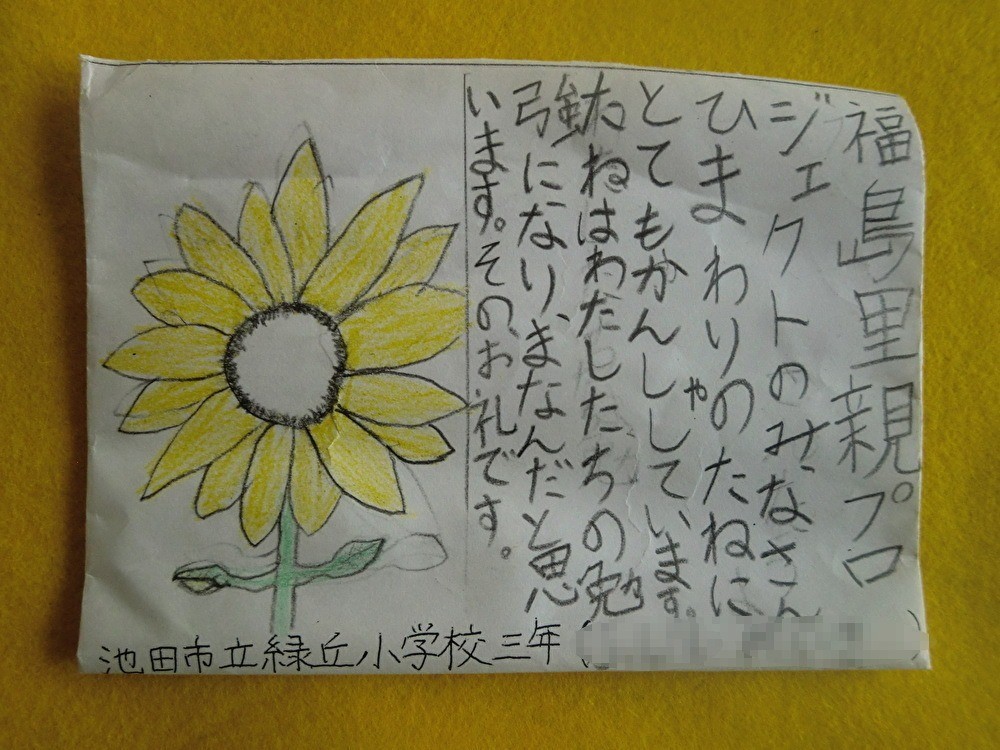 福島里親プロ
ジェクトのみなさん
ひまわりのたねに
とてもかんしゃしています。
たねはわたしたちの勉
強になり、まなんだと思
います。そのお礼です。
池田市立緑丘小学校三年